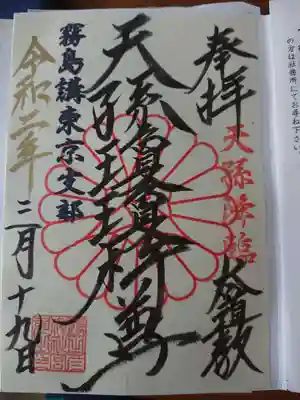 の方は社務所にてお尋ね下さい。
奉拝
天孫降臨
天孫瓊瓊杵尊
霧島講東京支部
令和二年
三月十九日